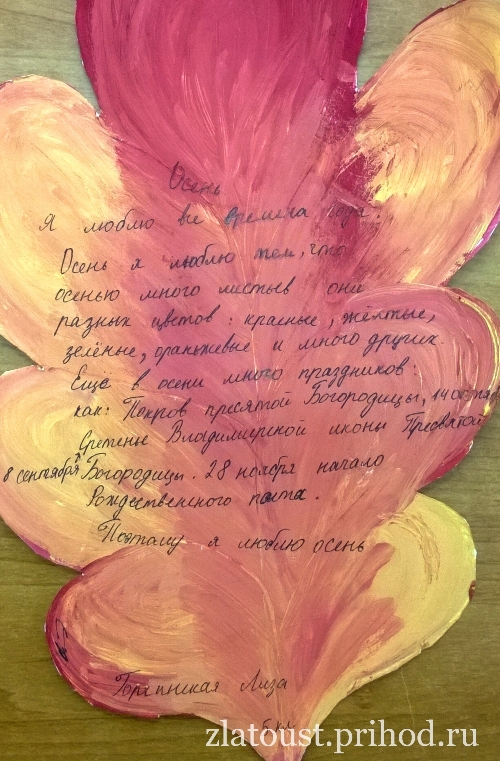 Осень
Я люблю все времена года.
Осень я люблю тем, что
осенью много листьев они
разных цветов: красные, жёлтые,
зелёные, оранжевые и много других.
Ещё в осени много праздников:
как: Покров пресятой Богородицы, 14 октября
Сретенье Владимирской иконы Пресвятой
8 сентября Богородицы. 28 ноября начало
Рождественского поста.
Поэтому я люблю осень
Лиза
6 кл
zlatoust.prihod.ru